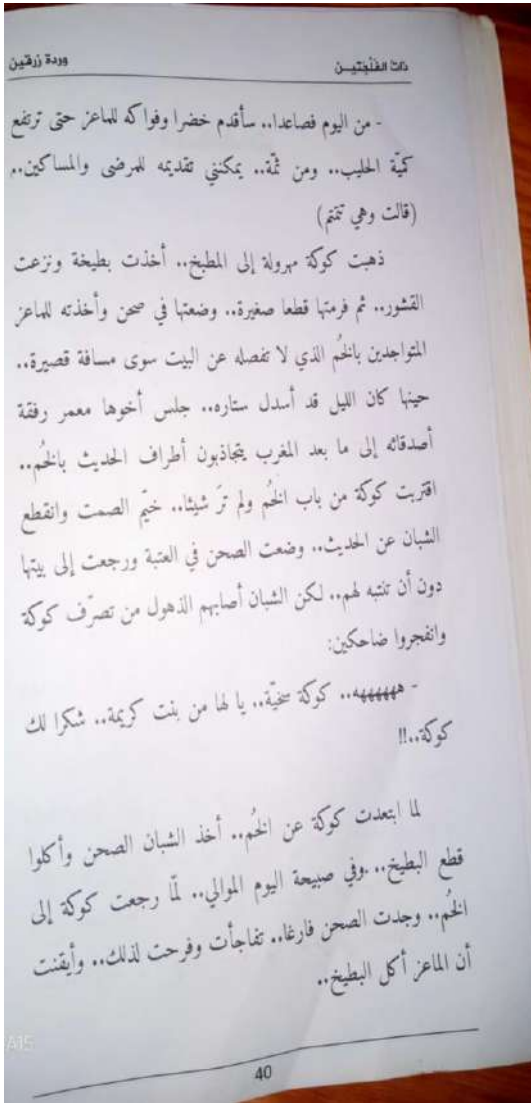 ذات الفَلْجَتيـن
وردة زرقين
- من اليوم فصاعدا.. سأقدم خضرا وفواكه للماعز حتى ترتفع
كميّة الحليب.. ومن ثمّة.. يمكنني تقديمه للمرضى والمساكين..
(قالت وهي تتمتم)
ذهبت كوكة مهرولة إلى المطبخ.. أخذت بطيخة ونزعت
القشور.. ثم فرمتها قطعا صغيرة.. وضعتها في صحن وأخذته للماعز
المتواجدين بالخُم الذي لا تفصله عن البيت سوى مسافة قصيرة..
حينها كان الليل قد أسدل ستاره.. جلس أخوها معمر رفقة
أصدقائه إلى ما بعد المغرب يتجاذبون أطراف الحديث بالخُم..
اقتربت كوكة من باب الخُم ولم ترَ شيئا.. خيّم الصمت وانقطع
الشبان عن الحديث.. وضعت الصحن في العتبة ورجعت إلى بيتها
دون أن تنتبه لهم.. لكن الشبان أصابهم الذهول من تصرّف كوكة
وانفجروا ضاحكين:
- هههههه.. كوكة سخيّة.. يا لها من بنت كريمة.. شكرا لك
كوكة..!!
لما ابتعدت كوكة عن الخُم.. أخذ الشبان الصحن وأكلوا
قطع البطيخ.. وفي صبيحة اليوم الموالي.. لمّا رجعت كوكة إلى
الخُم.. وجدت الصحن فارغا.. تفاجأت وفرحت لذلك.. وأيقنت
أن الماعز أكل البطيخ..
A15
40